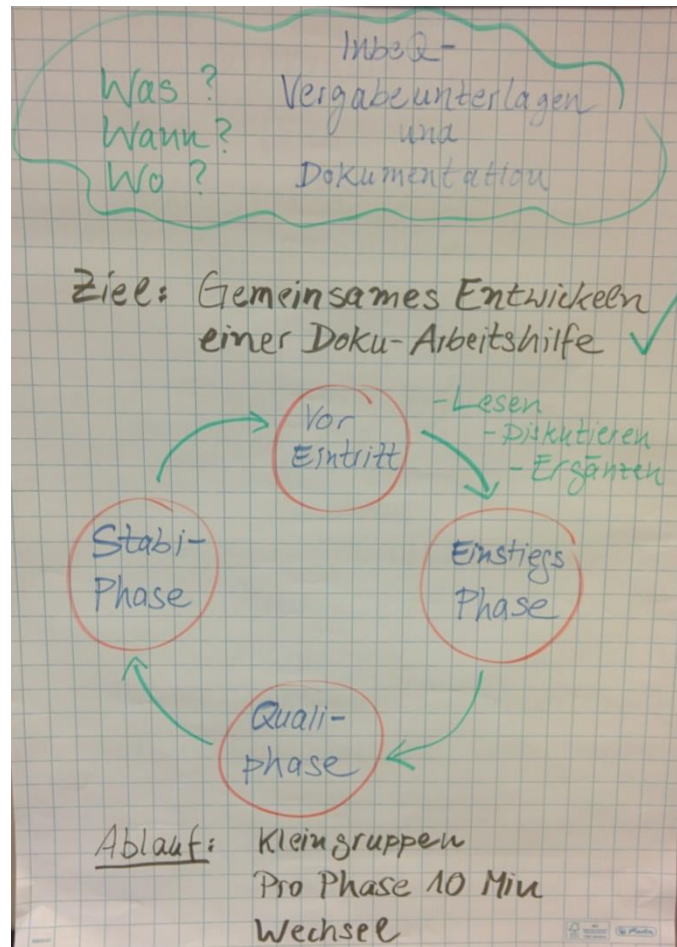 Was?
Wann?
Wo?
InbeQ-
Vergabeunterlagen
und
Dokumentation
Ziel: Gemeinsames Entwickeln
einer Doku-Arbeitshilfe
Vor
Eintritt
-Lesen
-Diskutieren
-Ergänzen
Einstiegs
Phase
Quali-
phase
Stabi-
Phase
Ablauf: Kleingruppen
Pro Phase 10 Min
Wechsel